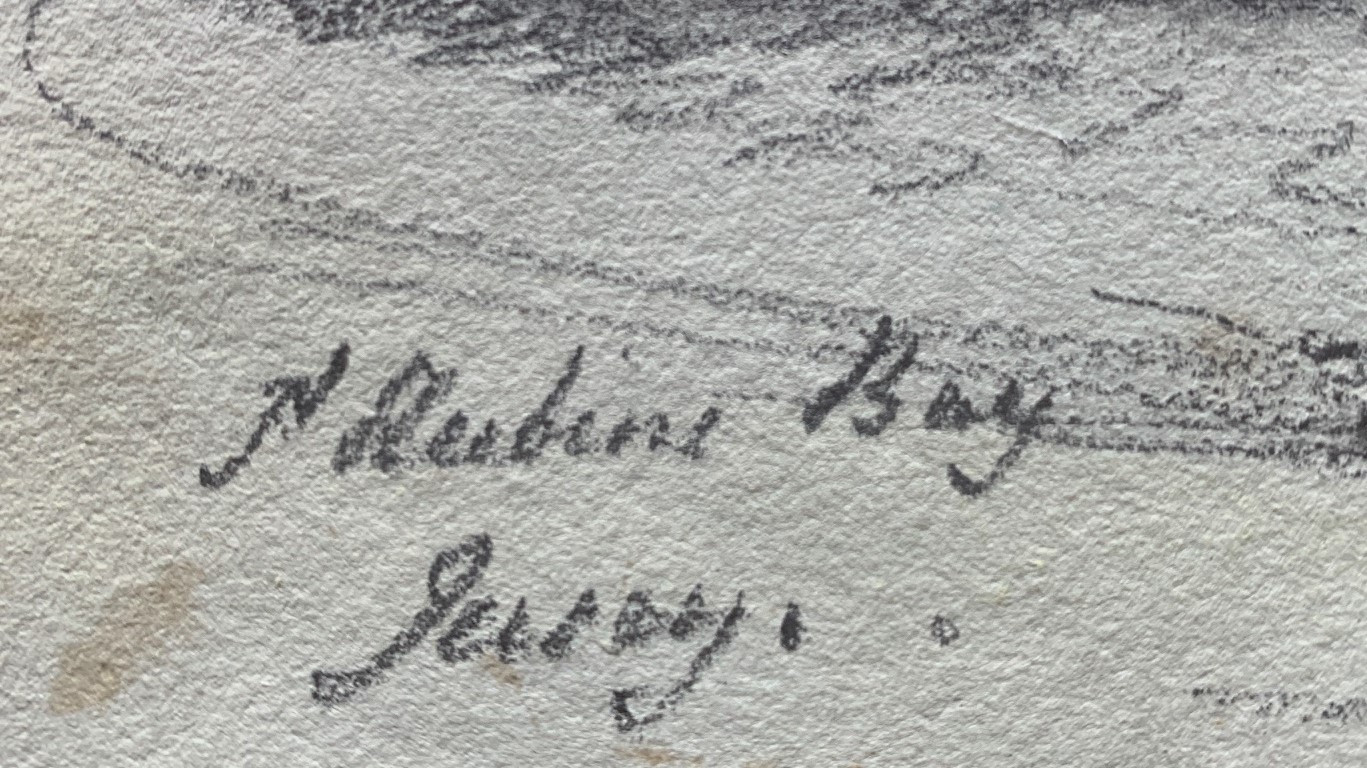 St Aubins Bay
Jersey.